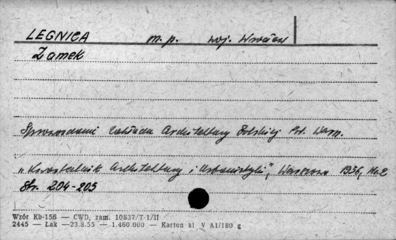 LEGNICA m. p. woj. Wrocław
Zamek
Sprawozdanie Zakładu Architektury Polskiej Pol. Warsz.
„Kwartalnik Architektury i Urbanistyki", Warszawa 1956,
Str. 204-205
Wzór Kb-156 — CWD, zam. 10837/T-1/II
2445 — Lak —23.8.55 — 1.460.000 — Karton kl V A1/180 g